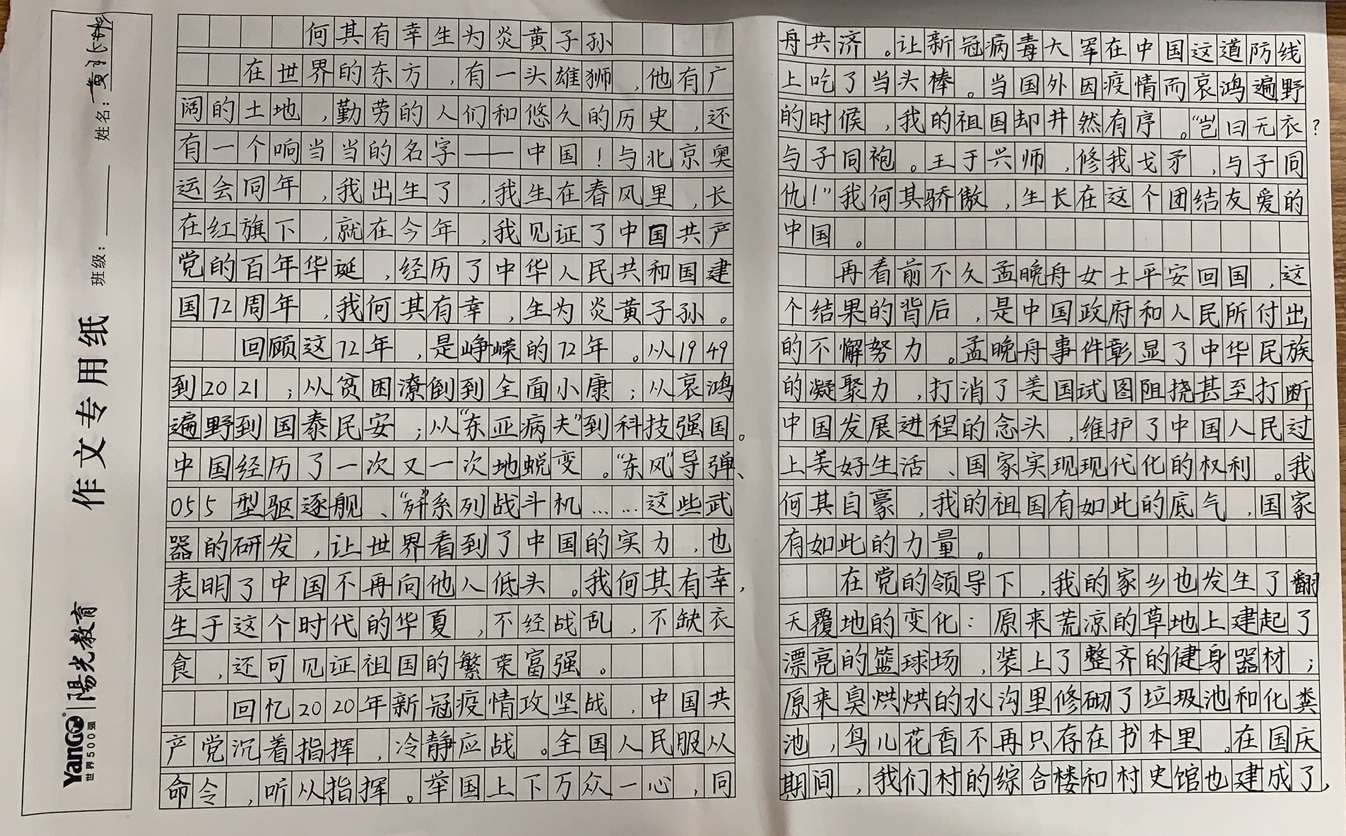 作文专用纸
班级：
姓名：
YanGO 陽光教育
世界500强
何其有幸生为炎黄子孙
在世界的东方，有一头雄狮，他有广
阔的土地，勤劳的人们和悠久的历史，还
有一个响当当的名字——中国！与北京奥
运会同年，我出生了，我生在春风里，长
在红旗下，就在今年，我见证了中国共产
党的百年华诞，经历了中华人民共和国建
国72周年，我何其有幸，生为炎黄子孙。
回顾这72年，是峥嵘的72年。从1949
到2021；从贫困潦倒到全面小康；从哀鸿
遍野到国泰民安；从“东亚病夫”到科技强国。
中国经历了一次又一次地蜕变。“东风”导弹、
055型驱逐舰、“歼”系列战斗机……这些武
器的研发，让世界看到了中国的实力，也
表明了中国不再向他人低头。我何其有幸，
生于这个时代的华夏，不经战乱，不缺衣
食，还可见证祖国的繁荣富强。
回忆2020年新冠疫情攻坚战，中国共
产党沉着指挥，冷静应战。全国人民服从
命令，听从指挥。举国上下万众一心，同
舟共济。让新冠病毒大军在中国这道防线
上吃了当头棒。当国外因疫情而哀鸿遍野
的时候，我的祖国却井然有序。“岂曰无衣？
与子同袍。王于兴师，修我戈矛，与子同
仇！”我何其骄傲，生长在这个团结友爱的
中国。
再看前不久孟晚舟女士平安回国，这
个结果的背后，是中国政府和人民所付出
的不懈努力。孟晚舟事件彰显了中华民族
的凝聚力，打消了美国试图阻挠甚至打断
中国发展进程的念头，维护了中国人民过
上美好生活、国家实现现代化的权利。我
何其自豪，我的祖国有如此的底气，国家
有如此的力量。
在党的领导下，我的家乡也发生了翻
天覆地的变化：原来荒凉的草地上建起了
漂亮的篮球场，装上了整齐的健身器材；
原来臭烘烘的水沟里修砌了垃圾池和化粪
池，鸟儿花香不再只存在书本里。在国庆
期间，我们村的综合楼和村史馆也建成了，